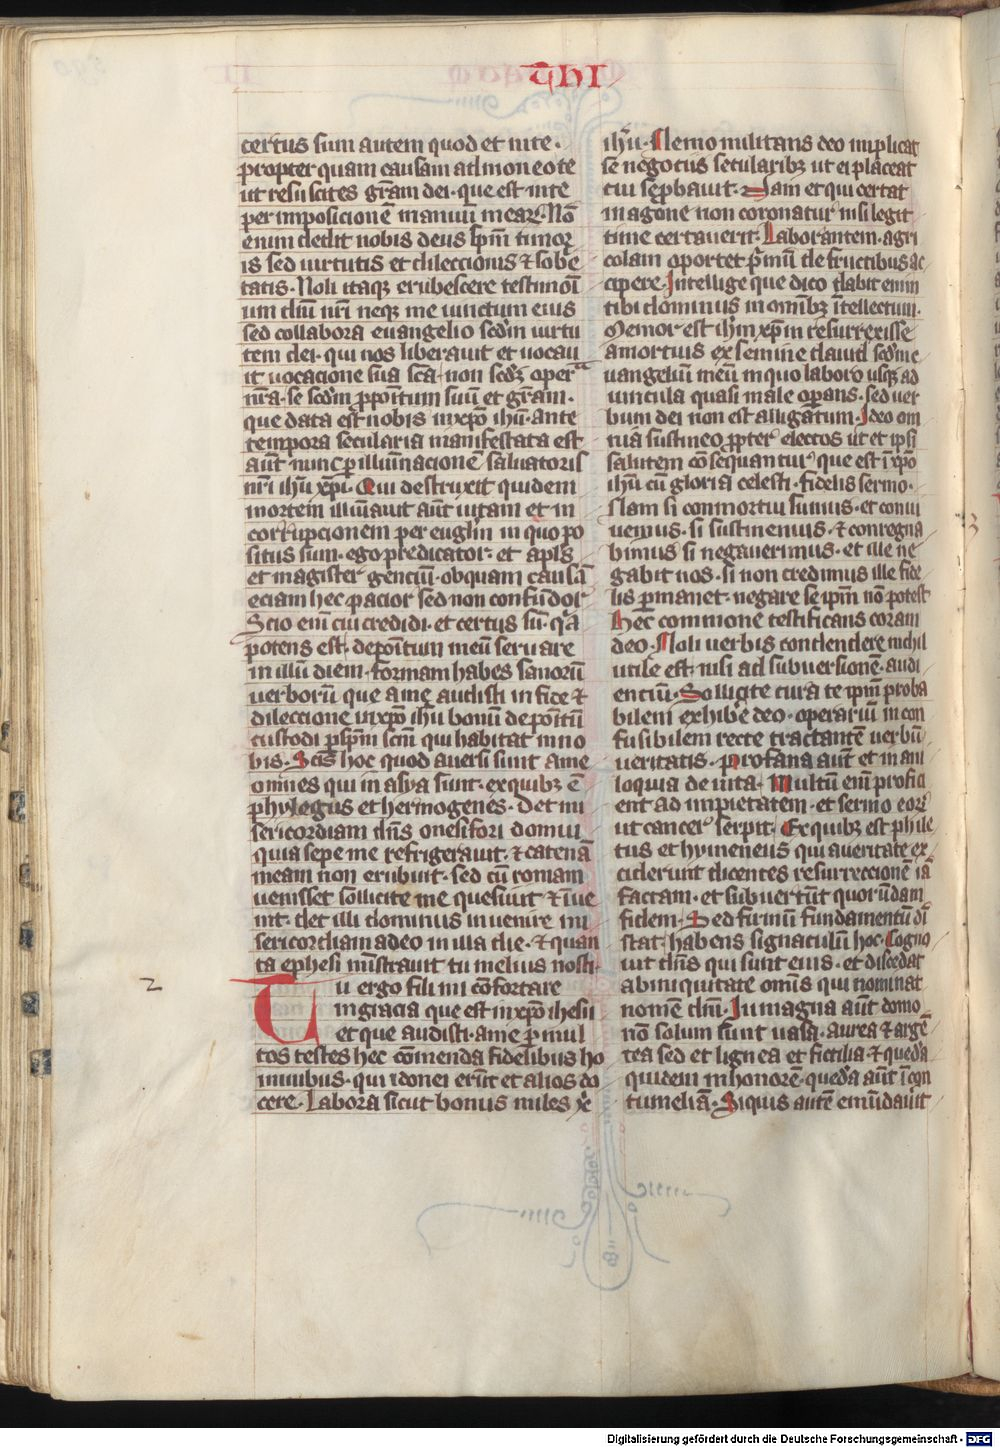 THI
certus sum autem quod et in te·
propter quam causam admoneo te
ut resuscites grām dei· que est in te
per imposicionē manuū mearꝝ· Nō
enim dedit nobis deus spm̄ timor
is sed uirtutis et dileccionis ⁊ sobrie
tatis· Noli itaqꝫ erubescere testimoī
um dn̄i nr̄i neqꝫ me uinctum eius
sed collabora euangelio scdm̄ uirtu
tem dei· qui nos liberauit et uocau
it uocacione sua sc̄a· non scdꝫ opera
nr̄a· se scdm̄ ꝓpoitum suū et grām·
que data est nobis in xp̄o ihū· ante
tempora secularia manifestata est
aūt nunc ꝑ illuīnacionē saluatoris
nr̄i ihū xp̄i· Qui destruxit quidem
mortem illuīauit aūt uitam et in
corrupcionem per euglm̄ in quo po
situs sum· ego predicator· et apl̄s
et magister genciū· ob quam causā
eciam hec pacior sed non confundor
Scio enī cui credidi· et certus sū· qꝛa
potens est· depoītum meū seruare
in illū diem· formam habes sanorū
uerborū que a me audisti in fide ⁊
dileccione in xp̄o ihū bonū depoītū
custodi ꝑ spm̄ scm̄ qui habitat in no
bis· Scis hoc quod auersi sunt a me
omnes qui in asya sunt· ex quibꝫ ē
phylegus et hermogenes· Det mi
sericordiam dn̄s onesifori domui
quia sepe me refrigerauit· ⁊ catenā
meam non erubuit· sed cū romam
uenisset sollicite me quesiuit ⁊ īue
nit· det illi dominus inuenire mi
sericordiam a deo in illa die· ⁊ quan
ta ephesi mīstrauit tu melius nosti·
2
Tu ergo fili mi cōfortare
in gracia que est in xp̄o ihesu
et que audisti· a me ꝑ mul
tos testes hec cōmenda fidelibus ho
minibus· qui idonei erūt et alios do
cere· Labora sicut bonus miles xp̄i
ihū· Nemo militans deo implicat
se negociis secularibꝫ ut ei placeat
cui se ꝓbauit· Nam et qui certat
in agone non coronatur nisi legit
time certauerit· Laborantem· agri
colam oportet pͥmū de fructibus ac
cipere· Intellige que dico dabit enim
tibi dominus in om̄ibꝫ ītellectum·
Memor est ihm̄ xp̄m resurrexisse
a mortuis ex semine dauid scdm̄ e
uangeliū meū in quo laboro usqꝫ ad
uincula quasi male operans· sed uer
bum dei non est alligatum· Ideo om
nia sustineo ꝓpter electos ut et ipsi
salutem cōsequantur que est ī xp̄o
ihū cū gloria celesti· fidelis sermo·
Nam si conmortui sumus· et conui
uemus· si sustinemus· ⁊ conregna
bimus si negauerimus· et ille ne
gabit nos· si non credimus ille fide
lis ꝑmanet· negare se ipm̄ nō potest
Hec commone testificans coram
deo· Noli uerbis contendere nichil
utile est· nisi ad subuersionē· audi
enciū· Sollicite cura te ipm̄ proba
bilem exhibe deo· operariū in con
fusibilem recte tractantē uerbū
ueritatis· profana aūt et inani
loquia deuita· Multū enī profici
ent ad impietatem· et sermo eorꝝ
ut cancer serpit· Ex quibꝫ est phile
tus et hymeneus qui a ueritate ex
ciderunt dicentes resurreccionē iā
factam· et subuertūt quorūdam
fidem· Sed firmū fundamentū dī
stat· habens signaculū hoc· Cogno
uit dn̄s qui sunt eius· et discedat
ab iniquitate omīs qui nominat
nomē dn̄i· In magna aūt domo·
nō solum sunt uasa· aurea ⁊ argē
tea sed et lignea et fictilia· ⁊ quedā
quidem in honorē· quedā aūt ī con
tumeliā· Siquis autē emūdauit
Digitalisierung gefördert durch die Deutsche Forschungsgemeinschaft - DFG